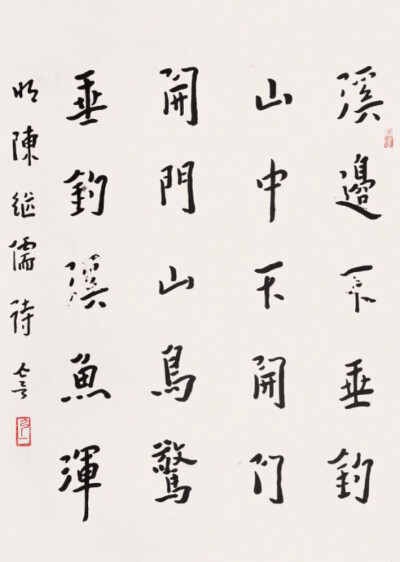 溪邊不垂釣
山中不開門
開門山鳥驚
垂釣溪魚渾
明陳繼儒詩